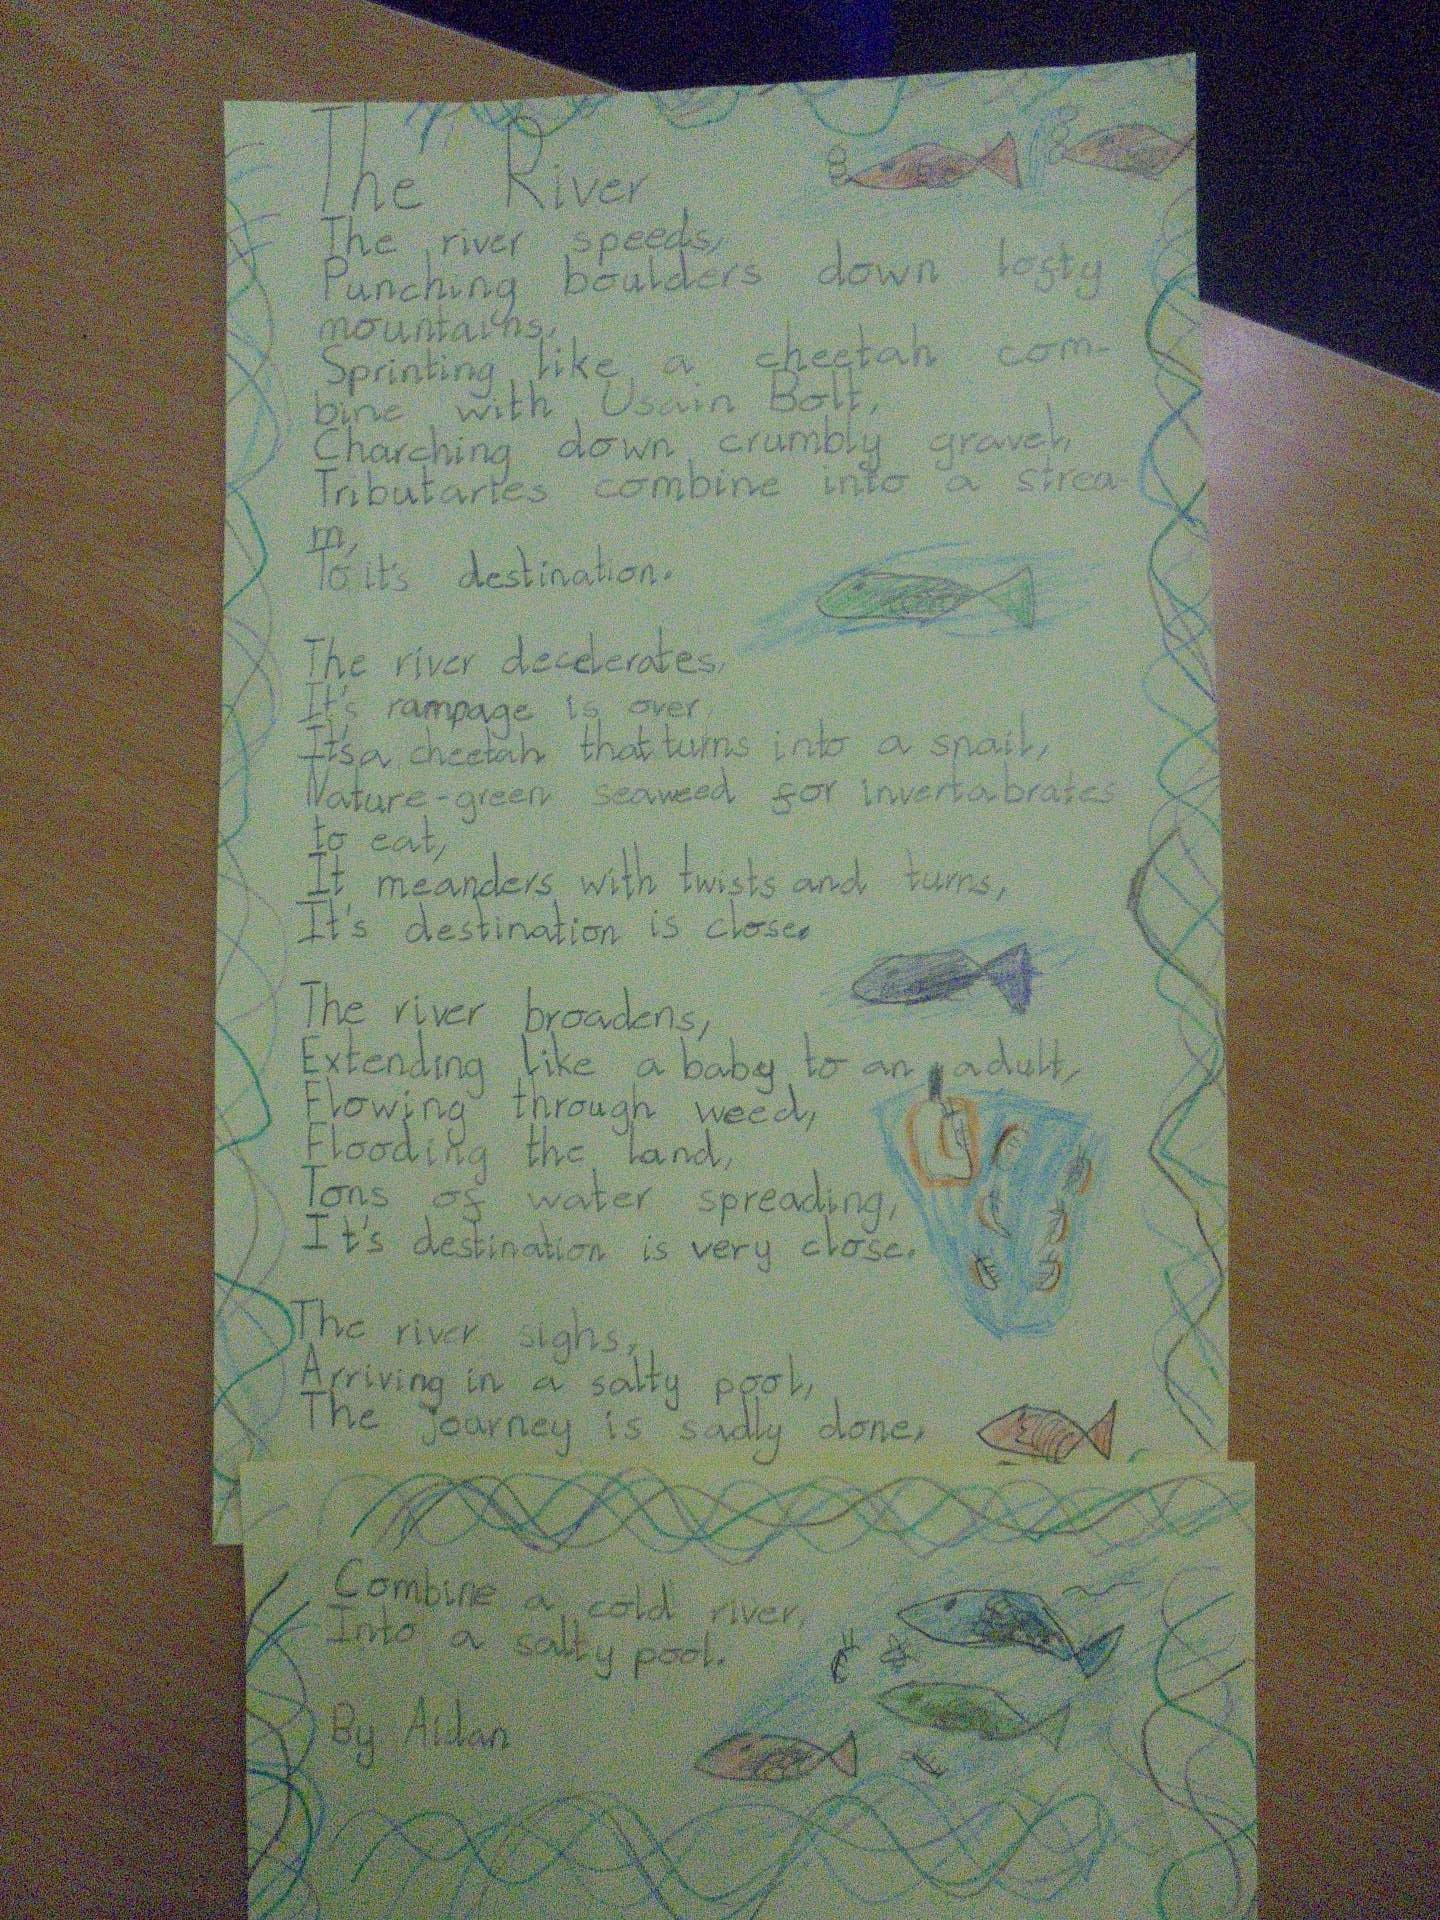 The River
The river speeds,
Punching boulders down lofty
mountains,
Sprinting like a cheetah com-
bine with Usain Bolt,
Charching down crumbly gravel,
Tributaries combine into a strea-
m,
To it's destination.
The river decelerates,
It's rampage is over,
Itsa cheetah that turns into a snail,
Nature-green seaweed for invertabrates
to eat,
It meanders with twists and turns,
It's destination is close.
The river broadens,
Extending like a baby to an adult,
Flowing through weed,
Flooding the land,
Tons of water spreading,
It's destination is very close.
The river sighs,
Arriving in a salty pool,
The journey is sadly done,
Combine a cold river,
Into a salty pool.
By Aidan